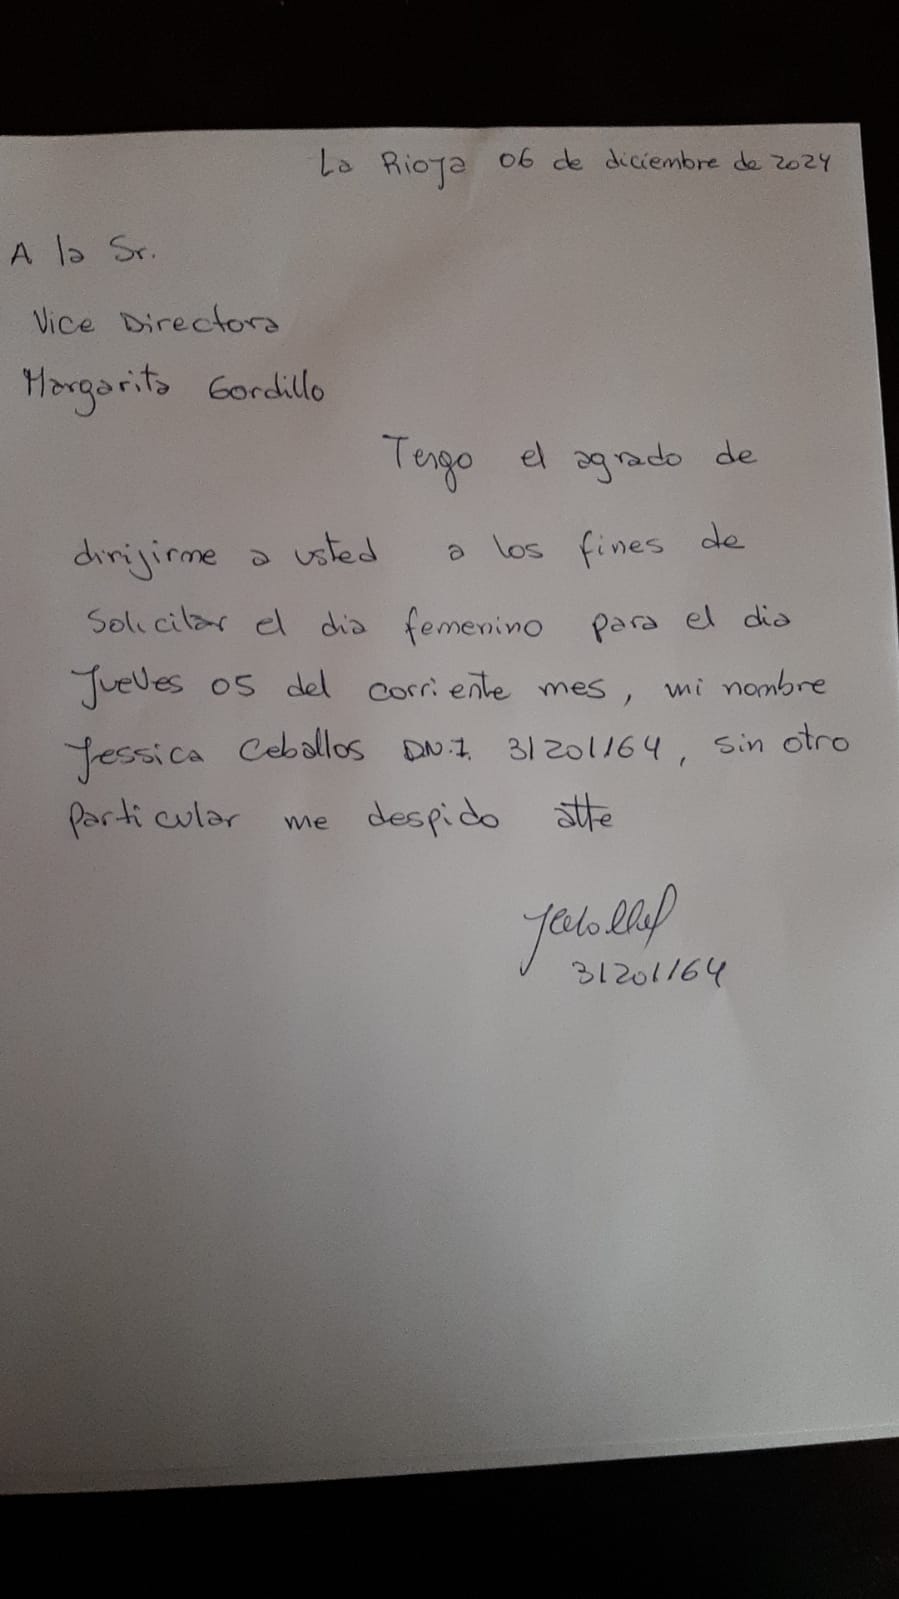 La Rioja 06 de diciembre de 2024
A la Sr.
Vice Directora
Margarita Gordillo
Tengo el agrado de
dirijirme a usted a los fines de
Solicitar el dia femenino para el dia
Jueves 05 del corriente mes, mi nombre
Jessica Ceballos D.N.I. 31201164, sin otro
particular me despido atte
JCeballos
31201164